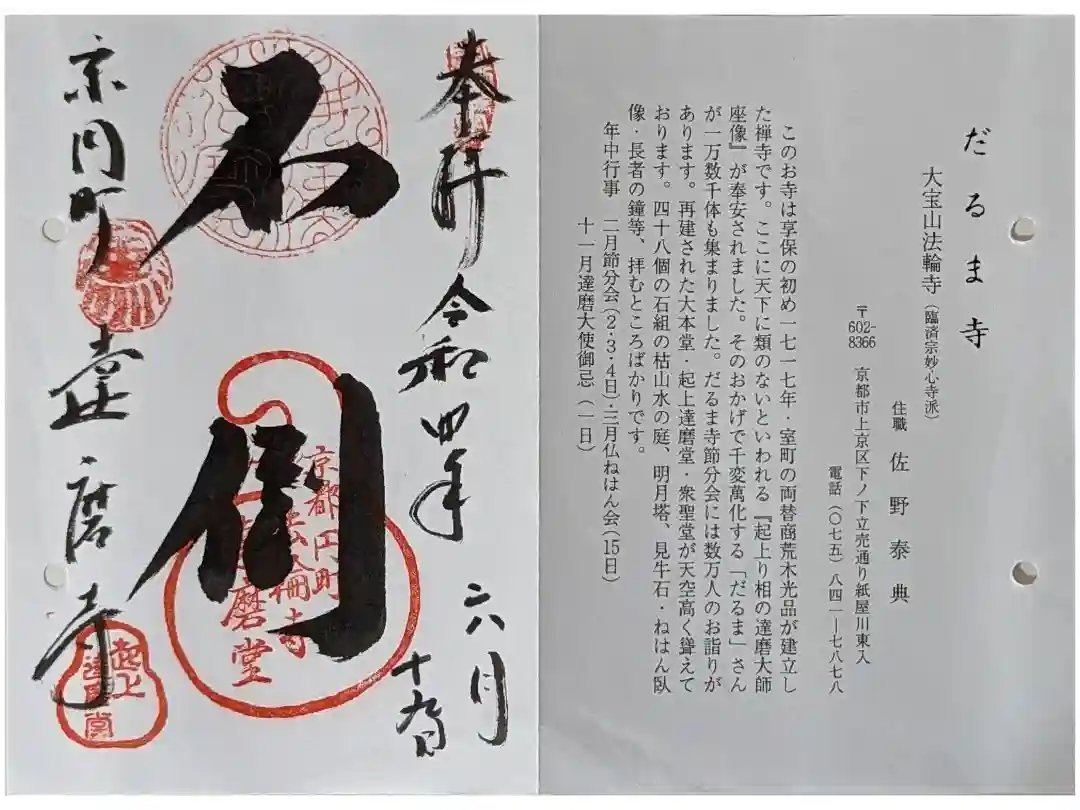 だるま寺
大宝山法輪寺（臨済宗妙心寺派）
住職 佐野泰典
〒602-8366 京都市上京区下ノ下立売通り紙屋川東入
電話（〇七五）八四一―七八七八
このお寺は享保の初め一七一七年・室町の両替商荒木光品が建立し
た禅寺です。ここに天下に類のないといわれる『起上り相の達磨大師
座像』が奉安されました。そのおかげで千変萬化する「だるま」さん
が一万数千体も集まりました。だるま寺節分会には数万人のお詣りが
あります。再建された大本堂・起上達磨堂・衆聖堂が天空高く聳えて
おります。四十八個の石組の枯山水の庭、明月塔、見牛石・ねはん臥
像・長者の鐘等、拝むところばかりです。
年中行事 二月節分会（2・3・4日）・三月仏ねはん会（15日）
十一月達磨大使御忌（一日）
奉拝 令和四年 六月
十九日
不倒
京都円町
法輪寺
磨堂
京円町 達磨寺
起上
達磨堂